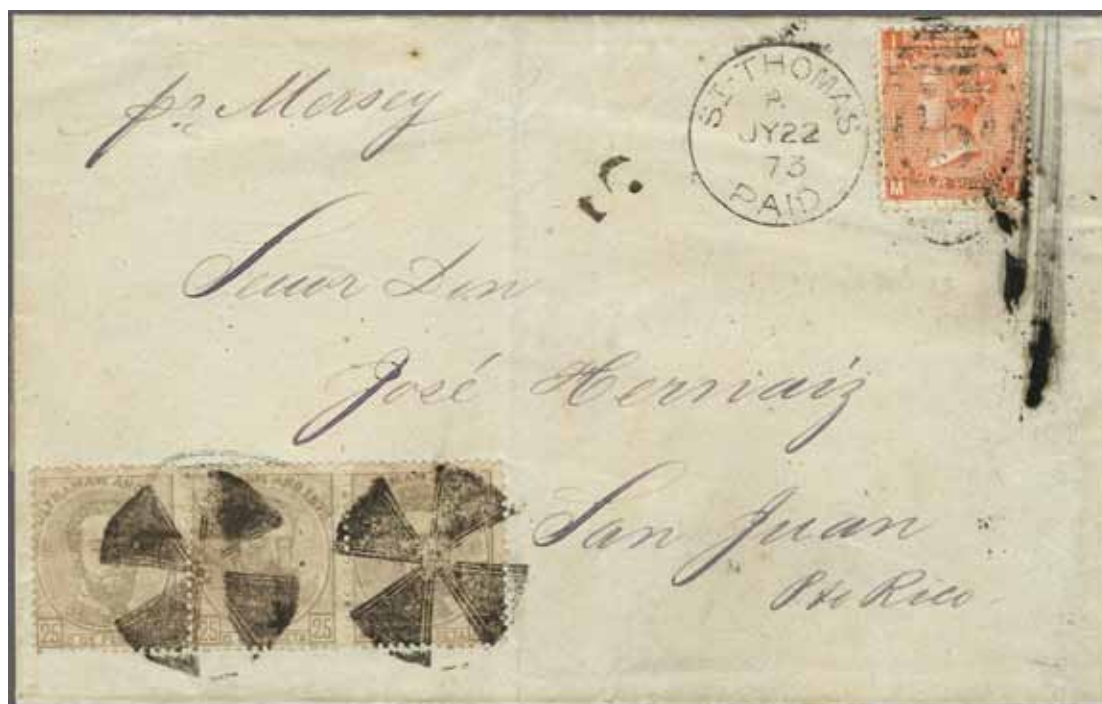 pr. Mersey
ST. THOMAS
JY 22
73
PAID
I M
M I
Senor Don
José Hernaiz
San Juan
Pto Rico
25 25 25